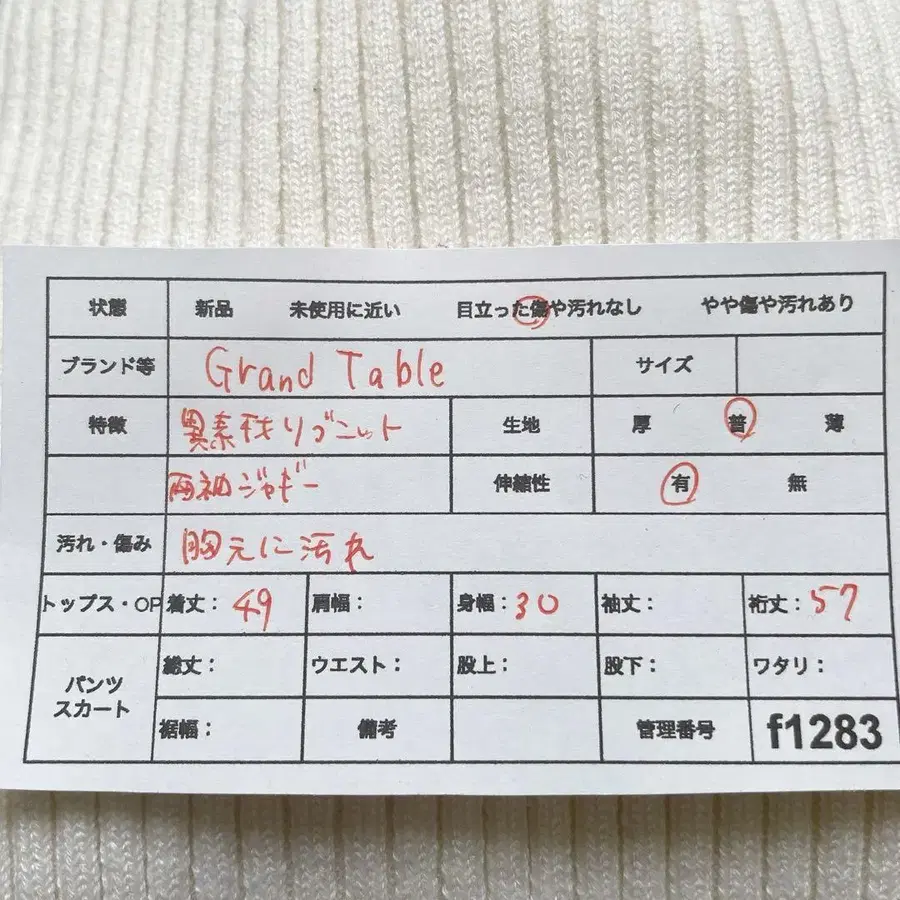 状態 新品 未使用に近い 目立った傷や汚れなし やや傷や汚れあり
ブランド等 Grand Table サイズ
特徴 異素材リブニット 生地 厚 普 薄
両袖シャギー 伸縮性 有 無
汚れ・傷み 胸元に汚れ
トップス・OP 着丈： 49 肩幅： 身幅：30 袖丈： 裄丈：57
パンツ
スカート
総丈： ウエスト： 股上： 股下： ワタリ：
裾幅： 備考 管理番号 f1283